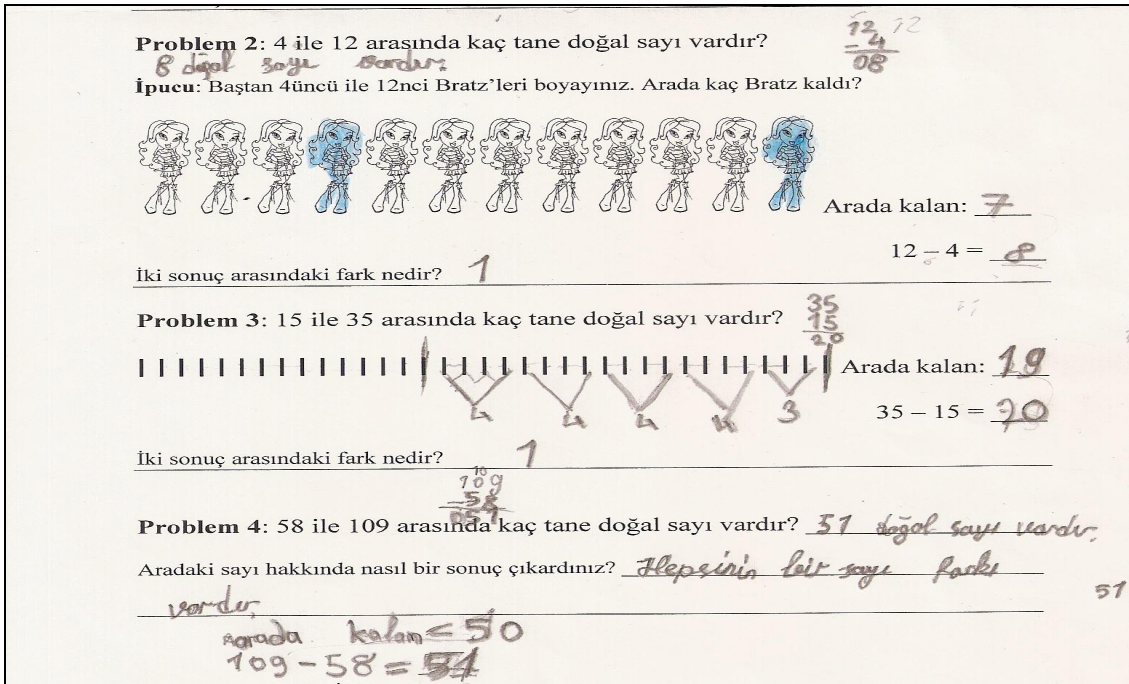 Problem 2: 4 ile 12 arasında kaç tane doğal sayı vardır?
12 12
- 4
08
8 doğal sayı vardır.
İpucu: Baştan 4üncü ile 12nci Bratz’leri boyayınız. Arada kaç Bratz kaldı?
Arada kalan: 7
12 – 4 = 8
İki sonuç arasındaki fark nedir? 1
Problem 3: 15 ile 35 arasında kaç tane doğal sayı vardır?
35
15
20
Arada kalan: 19
4 4 4 4 3
35 – 15 = 20
İki sonuç arasındaki fark nedir? 1
10
109
- 58
051
Problem 4: 58 ile 109 arasında kaç tane doğal sayı vardır? 51 doğal sayı vardır.
Aradaki sayı hakkında nasıl bir sonuç çıkardınız? Hepsinin bir sayı farkı
51
vardır.
arada kalan = 50
109 - 58 = 51